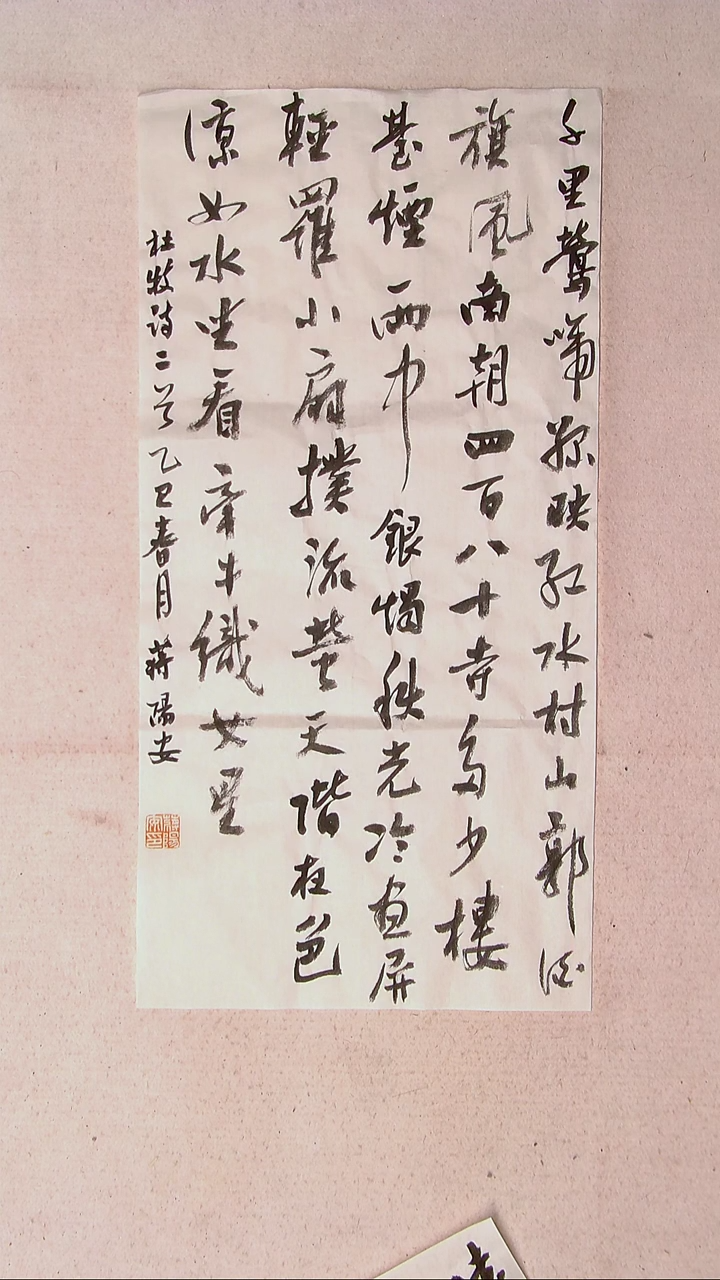 千里鶯啼綠映紅水村山郭酒
旗風南朝四百八十寺多少樓
臺煙雨中銀燭秋光冷畫屏
輕羅小扇撲流螢天階夜色
涼如水坐看牽牛織女星
杜牧詩二首乙巳春月蔣陽安
蔣陽安印